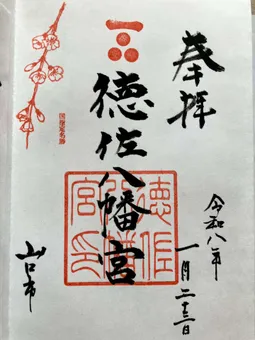 奉拝
徳佐八幡宮
徳佐八幡宮印
国指定名勝
令和八年
一月二十三日
山口市